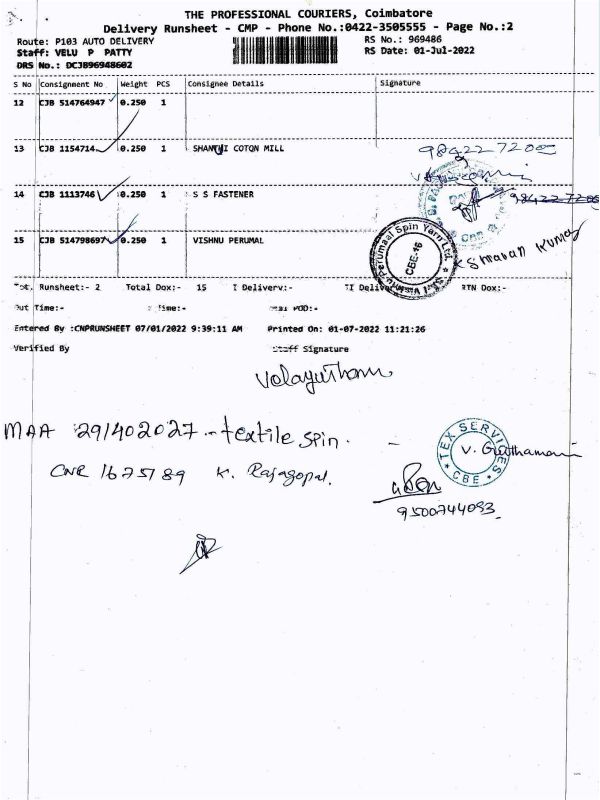 THE PROFESSIONAL COURIERS, Coimbatore
Delivery Runsheet - CMP - Phone No.:0422-3505555 - Page No.:2
Route: P103 AUTO DELIVERY
RS No.: 969486
Staff: VELU P PATTY
RS Date: 01-Jul-2022
DRS No.: DCJB96948602
S No Consignment No Weight PCS Consignee Details Signature
12 CJB 514764947 0.250 1
13 CJB 1154714 0.250 1 SHANTHI COTON MILL
14 CJB 1113746 0.250 1 S S FASTENER
15 CJB 514798697 0.250 1 VISHNU PERUMAL
Sravan Kumar
Perumaal Spin Yarn Ltd.
CBE-16
Tot. Runsheet:- 2 Total Dox:- 15 T Delivery:- RTN Dox:-
Out Time:-
Entered By :CNPRUNSHEET 07/01/2022 9:39:11 AM Printed On: 01-07-2022 11:21:26
Verified By Staff Signature
Velayutham
MAA 291402027 - textile spin.
TEX SERVICES
CBE
CNR 1675189 K. Rajagopal.
9500744093